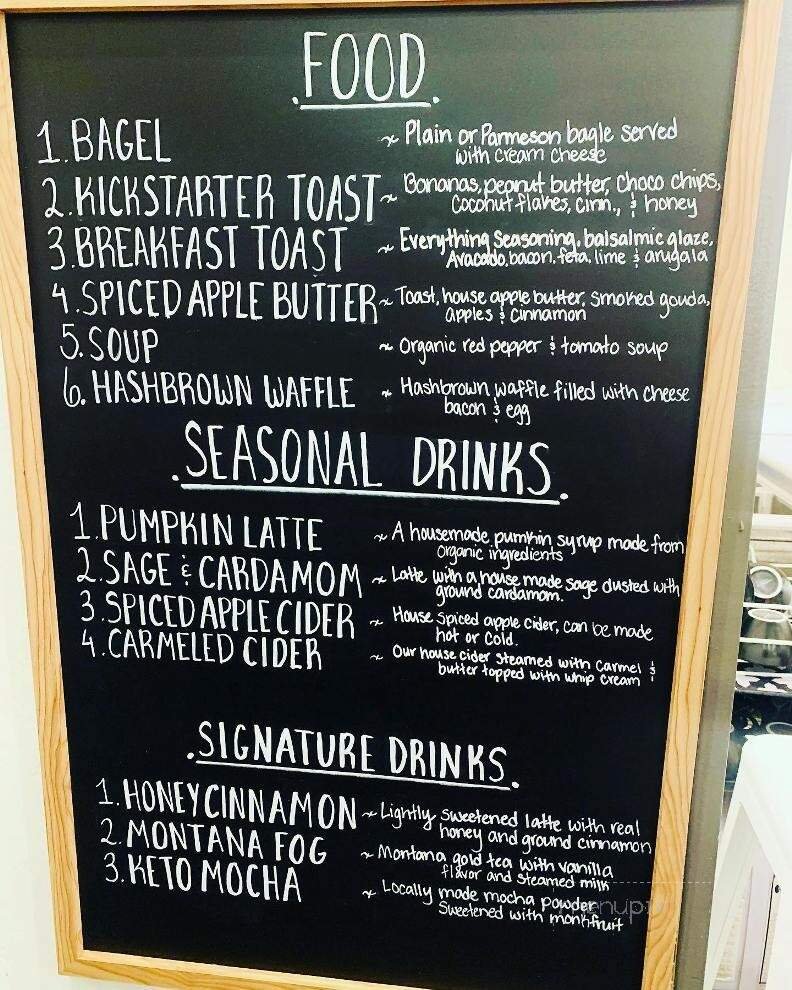 .FOOD.
1. BAGEL ~ Plain or Parmeson bagle served
with cream cheese
2. KICKSTARTER TOAST ~ Bananas, peanut butter, choco chips,
coconut flakes, cinn., & honey
3. BREAKFAST TOAST ~ Everything Seasoning, balsalmic glaze,
Avacado, bacon, feta, lime & arugala
4. SPICED APPLE BUTTER ~ Toast, house apple butter, smoked gouda,
apples & cinnamon
5. SOUP ~ Organic red pepper & tomato soup
6. HASHBROWN WAFFLE ~ Hashbrown waffle filled with cheese
bacon & egg
.SEASONAL DRINKS.
1. PUMPKIN LATTE ~ A housemade pumkin syrup made from
organic ingredients
2. SAGE & CARDAMOM ~ Latte with a house made sage dusted with
ground cardamom.
3. SPICED APPLE CIDER ~ House spiced apple cider, can be made
hot or cold.
4. CARMELED CIDER ~ Our house cider steamed with carmel &
butter topped with whip cream
.SIGNATURE DRINKS.
1. HONEY CINNAMON ~ Lightly sweetened latte with real
honey and ground cinnamon
2. MONTANA FOG ~ Montana gold tea with vanilla
flavor and steamed milk
3. KETO MOCHA ~ Locally made mocha powder
Sweetened with monkfruit